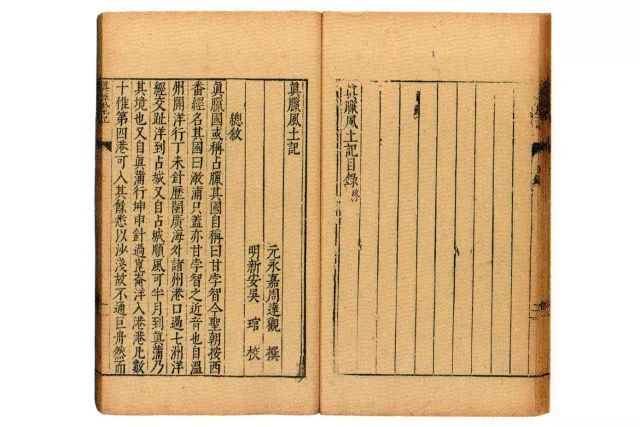 真臘風土記目錄終
真臘風土記
元永嘉周達觀 撰
明新安吳 琯 校
總敘
真臘國或稱占臘其國自稱曰甘孛智今聖朝按西
番經名其國曰澉浦只蓋亦甘孛智之近音也自溫
州開洋行丁未針歷閩廣海外諸州港口過七洲洋
經交趾洋到占城又自占城順風可半月到真蒲乃
其境也又自真蒲行坤申針過崑崙洋入港港凡數
十惟第四港可入其餘悉以沙淺故不通巨舟然而